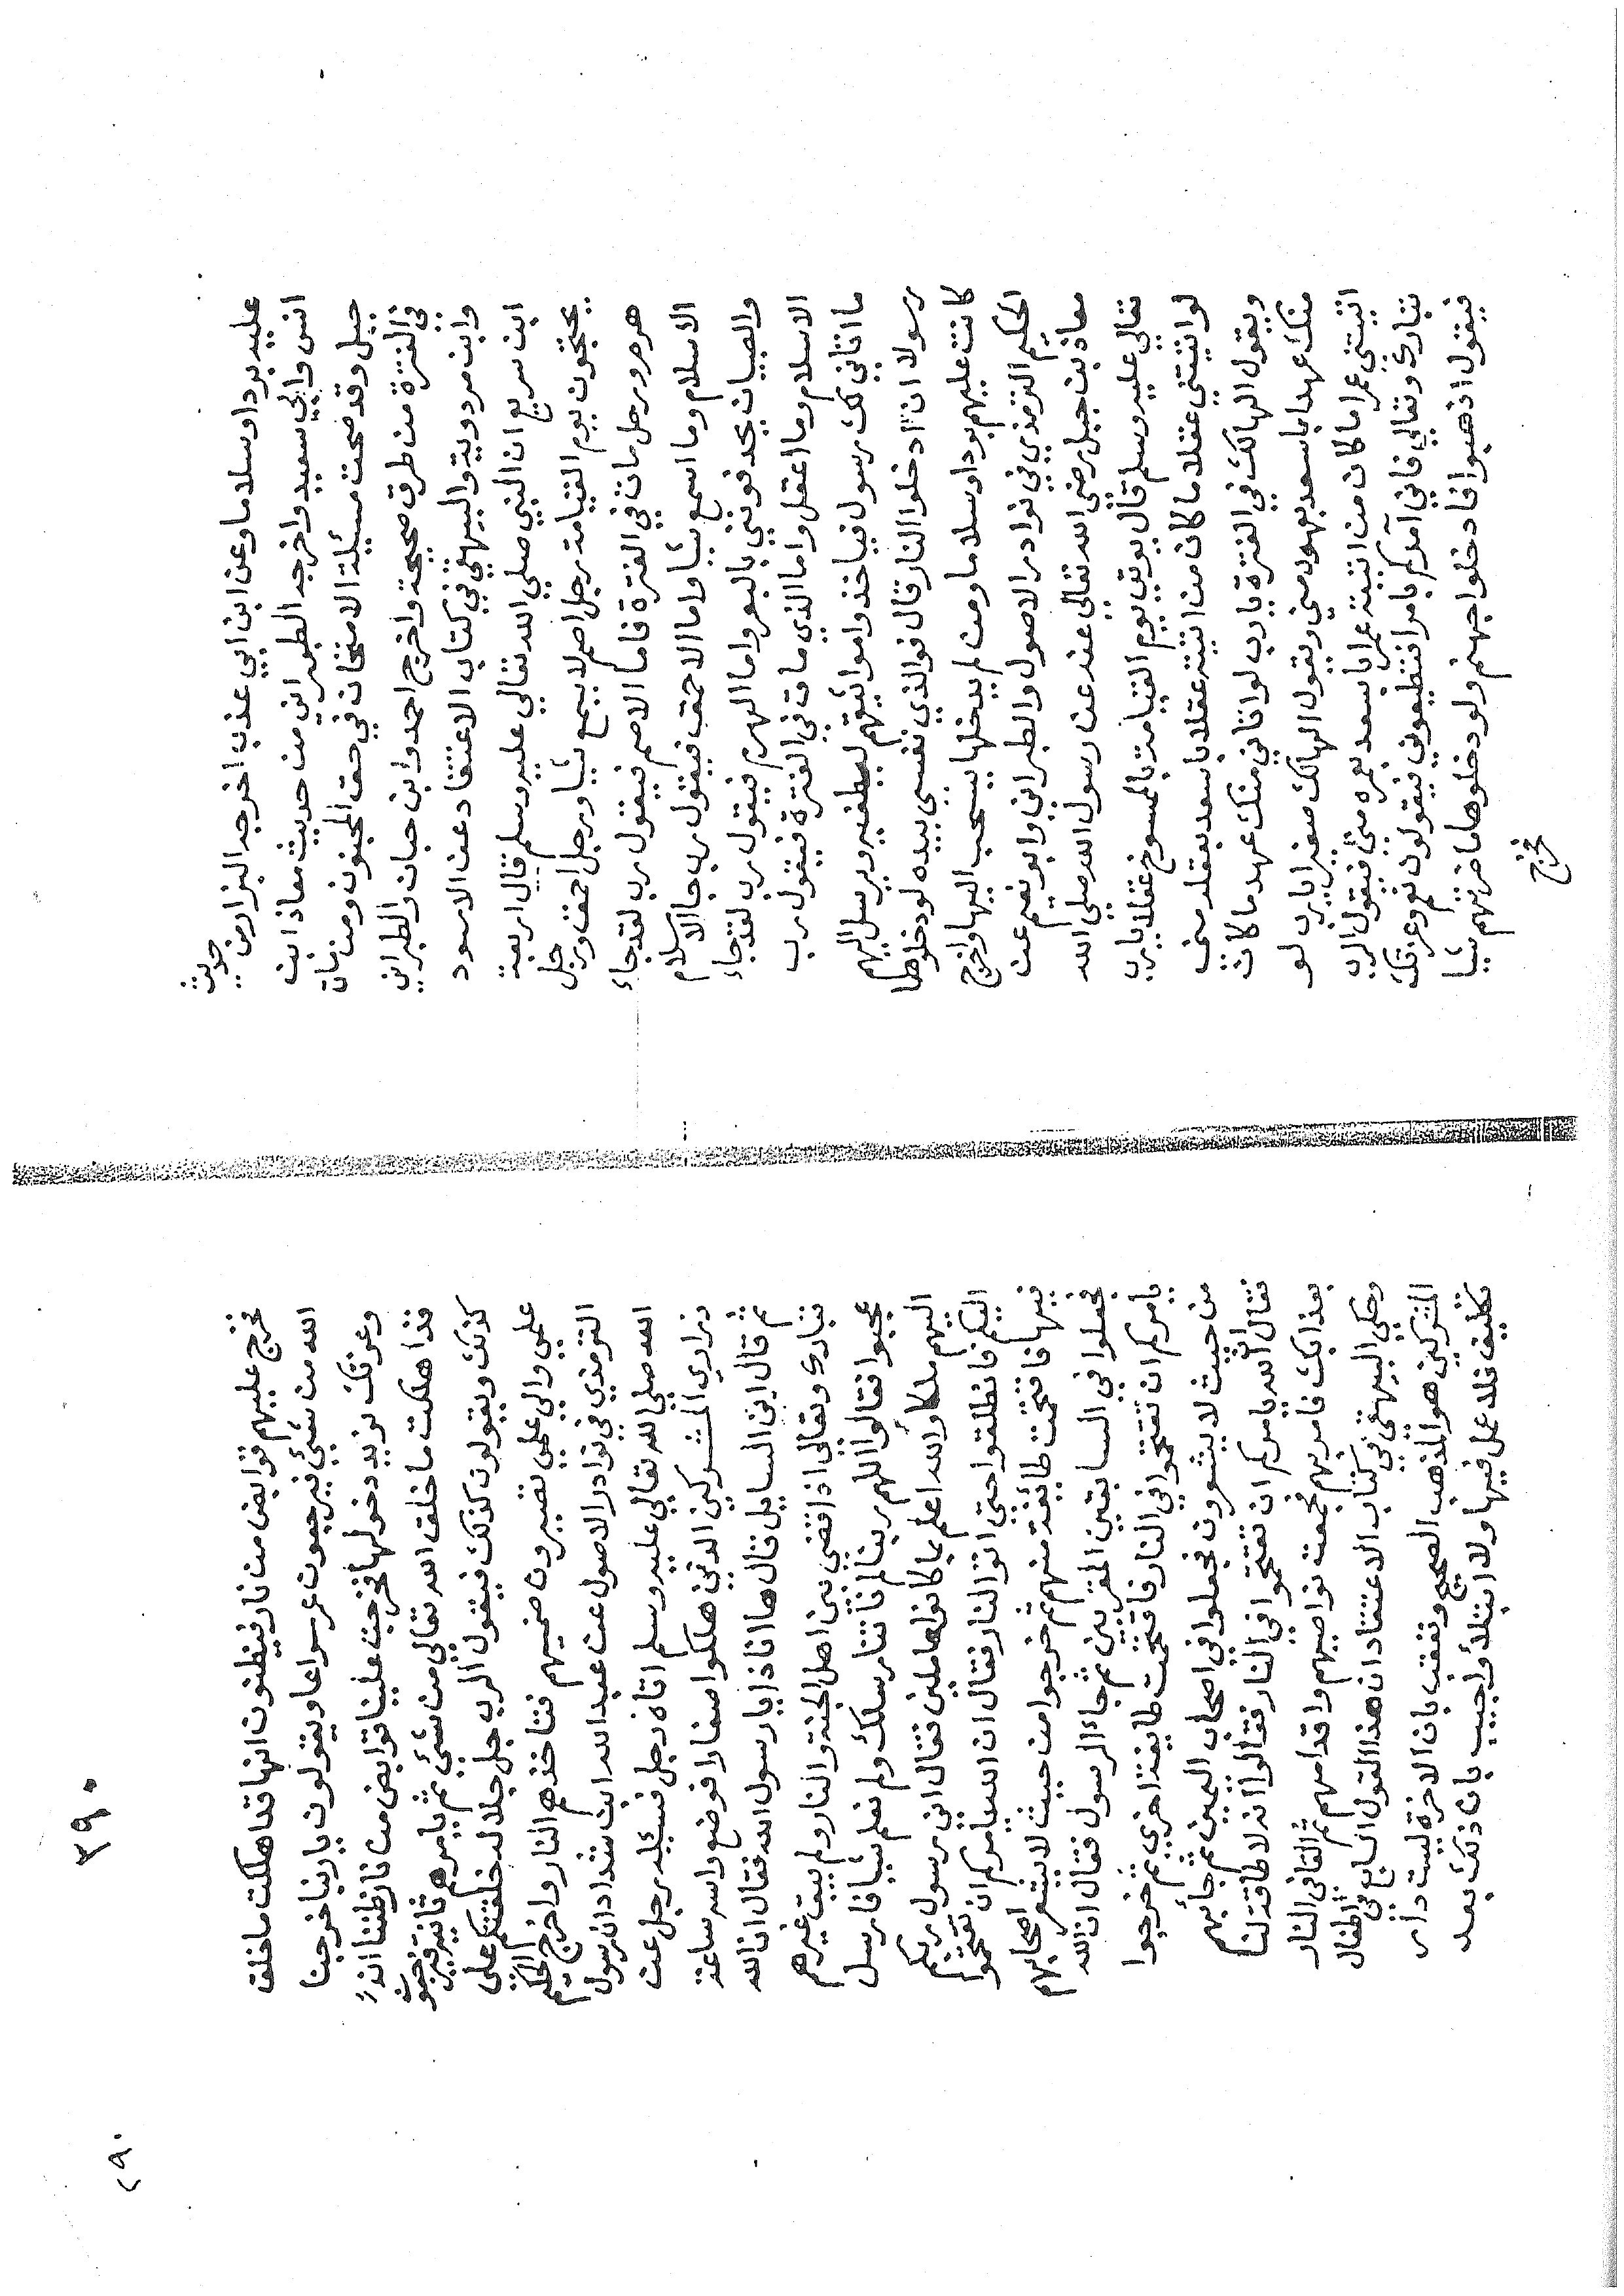 عليه بردا وسلاما وعن ابن ابي عذب اخرجه البزار من حديث
انس وابي سعيد واخرجه الطبراني من حديث معاذ ابن
جبل وقد صحت مسئلة الامتحان في حق المجنون ومن مات
في الفترة من طرق صحيحة واخرج احمد وابن حبان والطبراني
وابن مردويه والبيهقي في كتاب الاعتقاد عن الاسود
ابن سريع ان النبي صلي الله تعالي عليه وسلم قال اربعة
يحتجون يوم القيامة رجل اصم لا يسمع شيا ورجل احمق ورجل
هرم ورجل مات في الفترة فاما الاصم فيقول رب لقد جاء
الاسلام وما اسمع شيا واما الاحمق فيقول رب جا الاسلام
والصبيان يحذفونني بالبعر واما الهرم فيقول رب لقد جاء
الاسلام وما اعقل واما الذي مات في الفترة فيقول رب
ما اتاني لك رسول فياخذ واموائيقهم ليطعنه ويرسل اليهم
رسولا ان ادخلوا النار قال فوالذي نفسي بيده لو دخلوها
كانت عليهم بردا وسلاما ومن لم يدخلها يسحب اليها واخرج
الحكيم الترمذي في نوادر الاصول والطبراني وابو نعيم عن
معاذ بن جبل رضي الله تعالي عنه عن رسول الله صلي الله
تعالي عليه وسلم قال يوتي يوم القيامة بالممسوخ عقلا يارب
لو اتيتني عقلا ما كان من اتيته عقلا باسعد بعقله مني
ويقول الهالك في الفترة يارب لو اتاني منك عهد ما كان
منك عهدا باسعد بعهده مني ويقول الهالك صغيرا يارب لو
اتيتني عمرا ما كان من اتيته عمرا باسعد بعمره مني فيقول الرب
تبارك وتعالي فاني آمركم بامر افتطيعوني فيقولون نعم وعزتك
فيقول اذهبوا فادخلوا جهنم ولو دخلوها ما ضرتهم شيا
فخرج
٣٩٠
٢٩٠
فخرج عليهم قوابض من نار فيظنون انها قد اهلكت ما خلق
الله من شيئ فيرجعون سراعا ويقولون ياربنا خرجنا
وعزتك نريد دخولها فخرجت علينا قوابض من نار ظننا ان
قد اهلكت ما خلق الله تعالي من شيئ ثم يامرهم ثانية فيرجعون
كذلك ويقولون كذلك فيقول الرب جل جلاله خلقتكم علي
علمي والي علمي تصيرون ضميهم فتاخذهم النار واخرج الحكيم
الترمذي في نوادر الاصول عن عبد الله ابن شداد ان رسول
الله صلي الله تعالي عليه وسلم اتاه رجل فسئله رجل عن
ذراري المشركين الذين هلكوا صغارا فوضع راسه ساعة
ثم قال اين السايل قال ها اناذا يارسول الله فقال ان الله
تبارك وتعالي اذا قضي بين اهل الجنة والنار ولم يبق غيرهم
عجبوا فقالوا اللهم ربنا لم تاتنا رسلك ولم نعلم شيا فارسل
اليهم ملكا والله اعلم بما كانوا عاملين فقال اني رسول ربكم
اليكم فانطلقوا حتي اتوا النار فقال ان الله يامركم ان تقتحموا
فيها فاقتحمت طائفة منهم ثم خرجوا من حيث لا يشعر اصحابهم
فجعلوا في السابقين المقربين ثم جاء الرسول فقال ان الله
يامركم ان تقتحموا في النار فاقتحمت طايفة اخري ثم خرجوا
من حيث لا يشعرون فجعلوا في اصحاب اليمين ثم جائهم
فقال ان الله يامركم ان تقتحموا في النار فقالوا انه لا طاقة لنا
بعذابك فامر بهم فجمعت نواصيهم واقدامهم ثم القا في النار
وحكي البيهقي في كتاب الاعتقاد ان هذا القول السابع في اطفال
المشركين هو المذهب الصحيح وتعقب بان الاخرة ليست دار
تكليف فلا عمل فيها ولا ابتلاء واجيب بان ذلك بعد